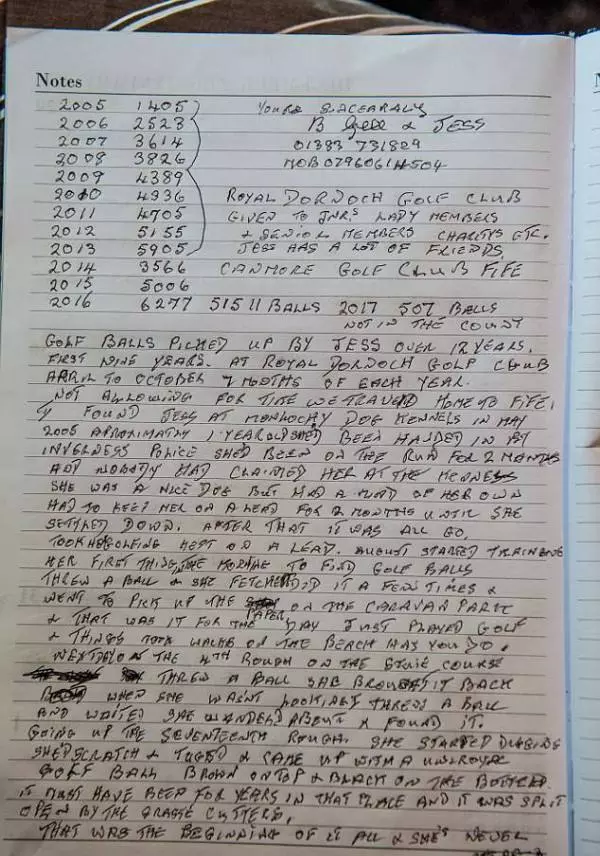 Notes
2005 1405 YOURS SINCEARALLY
2006 2523 B & JESS
2007 3614 01383 731829
2008 3826 MOB 07960614504
2009 4389
2010 4936 ROYAL DORNOCH GOLF CLUB
2011 4705 GIVEN TO JNRS LADY MEMBERS
2012 5155 & SENIOR MEMBERS CHARITYS ETC.
2013 5905 JESS HAS A LOT OF FRIENDS.
2014 3566 CANMORE GOLF CLUB FIFE
2015 5006
2016 6277 51511 BALLS 2017 507 BALLS
NOT IN THE COUNT
GOLF BALLS PICKED UP BY JESS OVER 12 YEARS.
FIRST NINE YEARS. AT ROYAL DORNOCH GOLF CLUB
APRIL TO OCTOBER 7 MONTHS OF EACH YEAR.
NOT ALLOWING FOR TIME WE TRAVELD HOME TO FIFE.
I FOUND JESS AT MONLOCHY DOG KENNELS IN MAY
2005 APROXIMATLY 1 YEAR OLD SHED BEEN HANDED IN BY
INVERNESS POLICE SHED BEEN ON THE RUN FOR 2 MONTHS
AND NOBODY HAD CLAIMED HER AT THE KENNESS
SHE WAS A NICE DOG BUT HAD A MIND OF HER OWN
HAD TO KEEP HER ON A LEAD FOR 2 MONTHS UNTIL SHE
SETTLED DOWN. AFTER THAT IT WAS ALL GO.
TOOK HER GOLFING KEPT ON A LEAD. AUGUST STARTED TRAINING
HER FIRST THING IN THE MORNING TO FIND GOLF BALLS
THREW A BALL & SHE FETCHED IT A FEW TIMES &
WENT TO PICK UP THE PAPER ON THE CARAVAN PARK
& THAT WAS IT FOR THE DAY JUST PLAYED GOLF
& THINGS TOOK WALKS ON THE BEACH HAS YOU DO.
NEXT DAY ON THE 4TH ROUGH ON THE COURSE
THREW A BALL SHE BROUGHT IT BACK
WHEN SHE WASNT LOOKING THREW A BALL
AND WAITED SHE WANDERD ABOUT & FOUND IT.
GOING UP THE SEVENTEENTH ROUGH. SHE STARTED DIGGING
SHED SCRATCH & TUGED & CAME UP WITH A UNIROYAL
GOLF BALL BROWN ON TOP & BLACK ON THE BOTTOM.
IT MUST HAVE BEEN FOR YEARS IN THAT PLACE AND IT WAS SPLIT
OPEN BY THE GRASS CUTTERS.
THAT WAS THE BEGINNING OF IT ALL & SHE'S NEVER